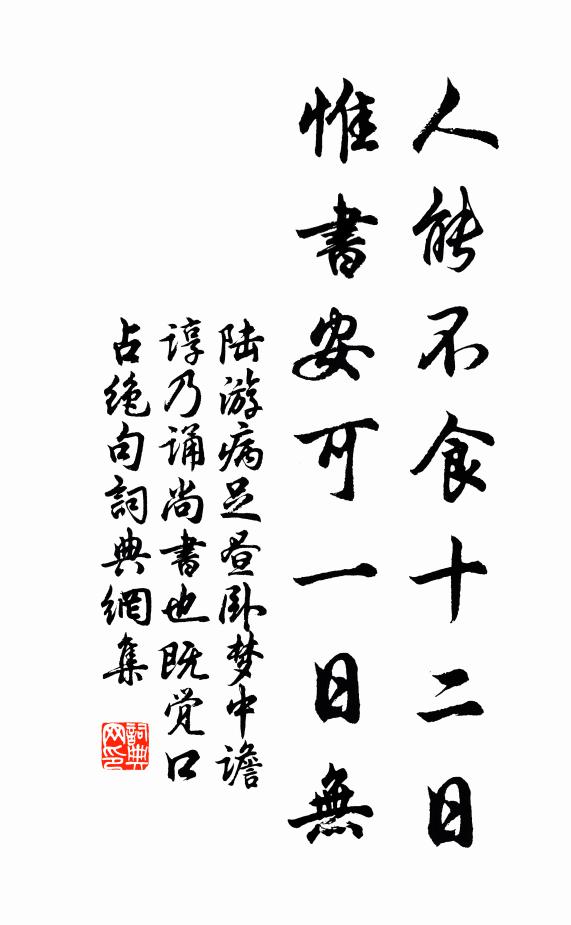 人能不食十二日
惟書安可一日無
陆游病足昼卧梦中譫
諄乃诵尚書也既觉口
占绝句詞典網集
詞典
网印